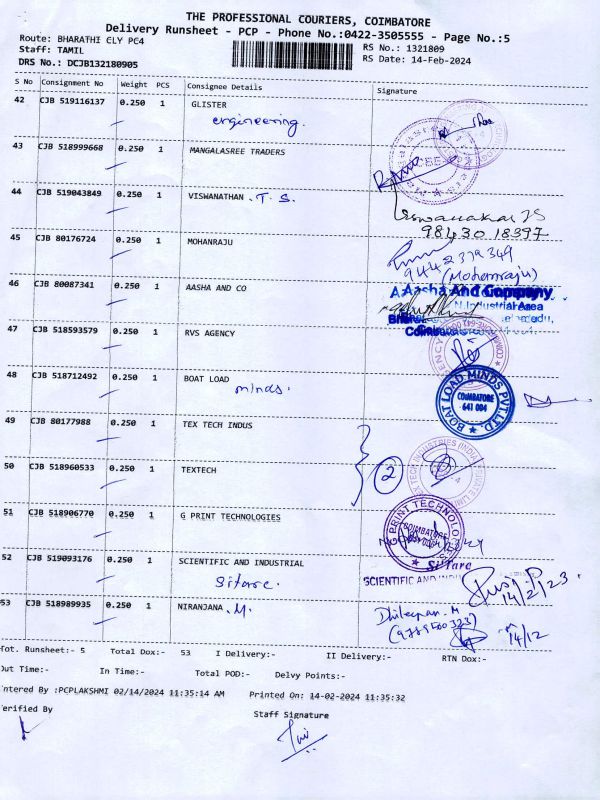 THE PROFESSIONAL COURIERS, COIMBATORE
Delivery Runsheet - PCP - Phone No.:0422-3505555 - Page No.:5
Route: BHARATHI CLY PC4 RS No.: 1321809
Staff: TAMIL RS Date: 14-Feb-2024
DRS No.: DCJB132180905
S No Consignment No Weight PCS Consignee Details Signature
42 CJB 519116137 0.250 1 GLISTER
engineering.
43 CJB 518999668 0.250 1 MANGALASREE TRADERS
44 CJB 519043849 0.250 1 VISWANATHAN . T. S.
98430 18397
45 CJB 80176724 0.250 1 MOHANRAJU
9442379349
(Mohanraju)
46 CJB 80087341 0.250 1 AASHA AND CO
Aasha And Company
Industrial Area
47 CJB 518593579 0.250 1 RVS AGENCY
48 CJB 518712492 0.250 1 BOAT LOAD
minds.
BOAT LOAD MINDS PVT.LTD.
COIMBATORE
641 004
49 CJB 80177988 0.250 1 TEX TECH INDUS
2
50 CJB 518960533 0.250 1 TEXTECH
51 CJB 518906770 0.250 1 G PRINT TECHNOLOGIES
G PRINT TECHNOLOGIES
COIMBATORE
52 CJB 519093176 0.250 1 SCIENTIFIC AND INDUSTRIAL
Sitarc.
Sitarc
SCIENTIFIC AND
14/2/23.
53 CJB 518989935 0.250 1 NIRANJANA . M.
14/12
Tot. Runsheet:- 5 Total Dox:- 53 I Delivery:- II Delivery:- RTN Dox:-
Out Time:- In Time:- Total POD:- Delvy Points:-
ntered By :PCPLAKSHMI 02/14/2024 11:35:14 AM Printed On: 14-02-2024 11:35:32
erified By Staff Signature